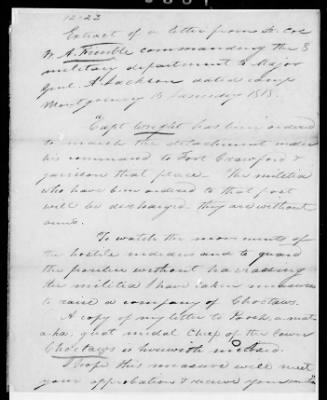 12-22
Extract of a letter from Lt. Col
W. A. Trimble commanding the 8
military department to Major
Genl. A Jackson dated camp
Montgomery January 1818.
"Capt Wright has been ordered
to march the detachment under
his command to Fort Crawford &
garrison that place. The militia
who have been ordered to that post
will be discharged. they are without
arms.
To watch the movements of
the hostile indians and to guard
the frontier without harassing
the militia I have taken measures
to raise a company of Choctaws.
A copy of my letter to
great medal Chief of the
Choctaws is herewith
I hope this measure will meet
your approbation & receive your